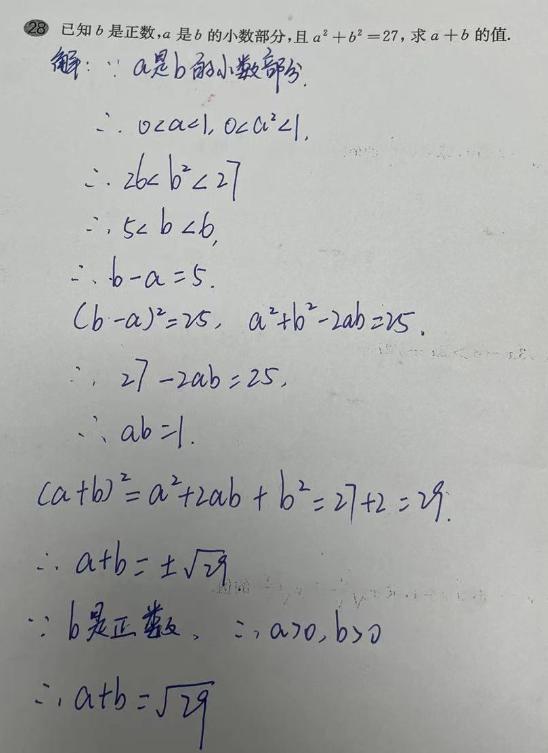 28 已知b是正数,a是b的小数部分,且a²+b²=27,求a+b的值.
解：∵ a是b的小数部分.
∴ 0<a<1, 0<a²<1.
∴ 26<b²<27
∴ 5<b<6,
∴ b-a=5.
(b-a)²=25, a²+b²-2ab=25.
∴ 27-2ab=25,
∴ ab=1.
(a+b)²=a²+2ab+b²=27+2=29.
∴ a+b=±√29
∵ b是正数, ∴ a>0, b>0
∴ a+b=√29